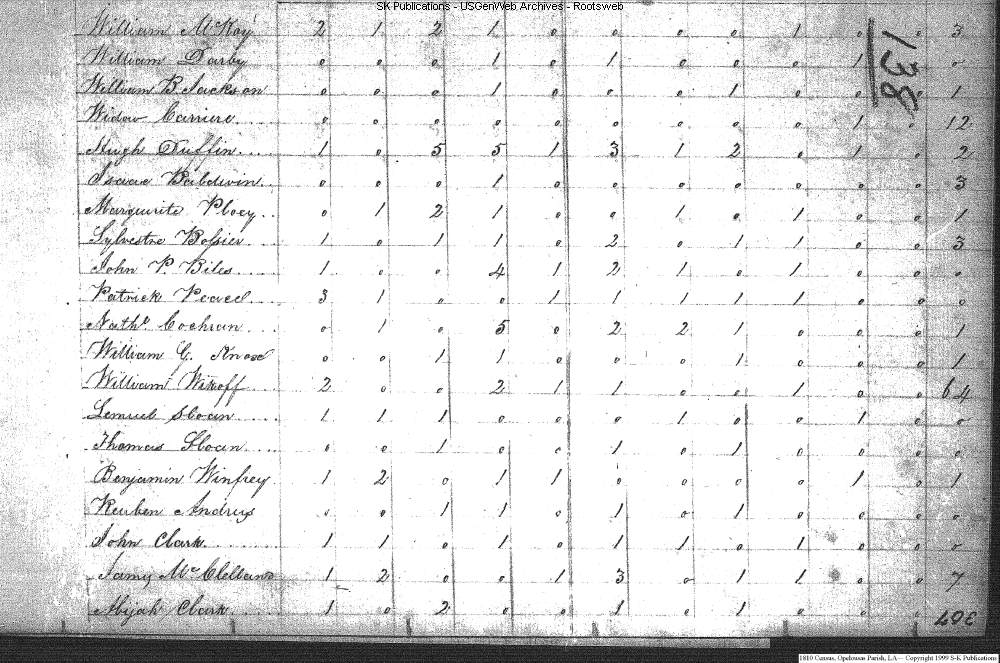 SK Publications - USGenWeb Archives - Rootsweb
138
William McKoy 2 1 2 1 0 0 0 0 1 0 0 3
William Darby 0 0 0 1 0 1 0 0 0 1 0 0
William B. Jackson 0 0 0 1 0 0 0 1 0 0 0 1
Widow Carriere 0 0 0 0 0 0 0 0 0 1 0 12
Hugh Duffin 1 0 5 5 1 3 1 2 0 1 0 2
Isaac Baldwin 0 0 0 1 0 0 0 0 0 0 0 3
Marguerite 0 1 2 1 0 0 1 0 1 0 0 1
Sylvestre Bossier 1 0 1 1 0 2 0 1 1 0 0 3
John P. Biles 1 0 0 4 1 2 1 0 1 0 0 0
Patrick 3 1 0 0 1 1 1 1 1 0 0 0
Nathl Cochran 0 1 0 5 0 2 2 1 0 0 0 1
William G. Knox 0 0 1 1 0 0 0 1 0 0 0 1
William Wikoff 2 0 0 2 1 1 0 0 1 0 0 64
Lemuel Sloan 1 1 1 0 0 0 1 0 0 1 0 0
Thomas Sloan 0 0 1 0 0 1 0 1 0 0 0 0
Benjamin Winfrey 1 2 0 1 1 0 0 0 0 1 0 1
Reuben Andrus 0 0 1 1 0 1 0 1 0 0 0 0
John Clark 1 1 0 1 0 1 1 0 1 0 0 0
McClelland 1 2 0 0 1 3 0 1 1 0 0 7
Abijah Clark 1 0 2 0 0 1 0 1 0 0 0
1810 Census, Opelousas Parish, LA -- Copyright 1999 S-K Publications